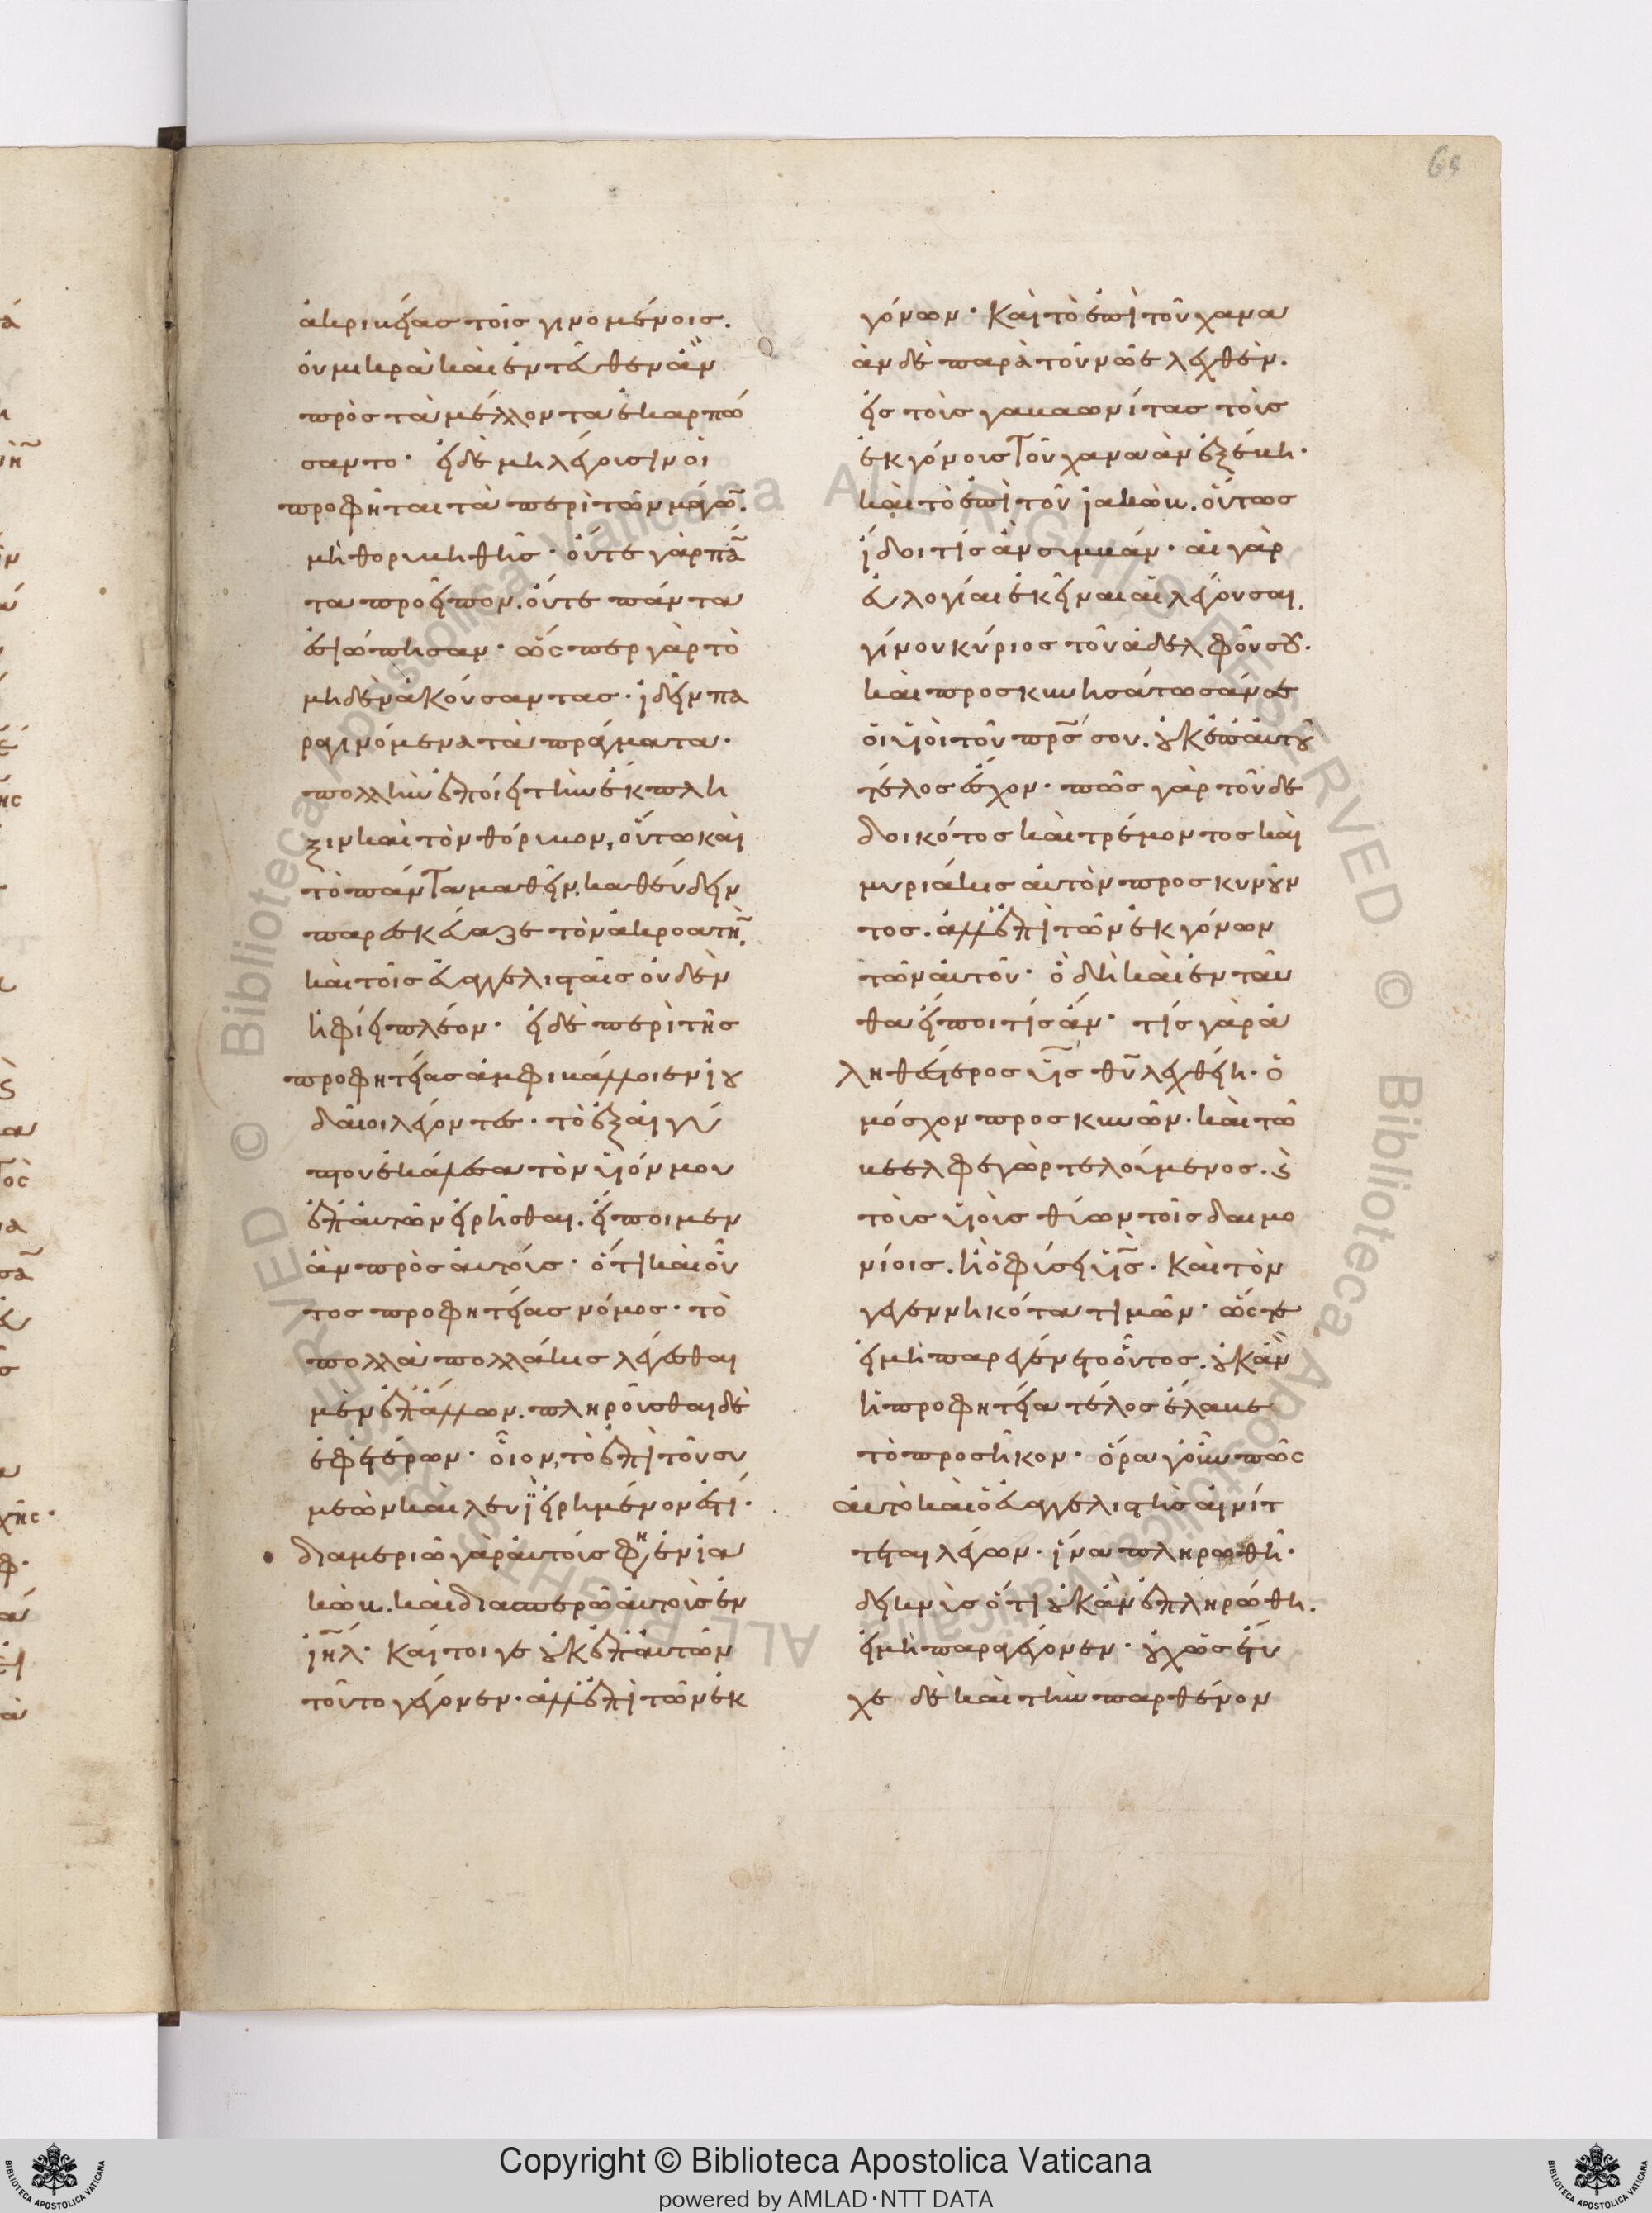 ἀκριβείας τοῖς γινομένοις.
οὐ μικρὰ καὶ ἐντεῦθεν ἂν
πρὸς τὰ μέλλοντα ἐκαρπώ
σαντο· εἰ δὲ μὴ λέγουσιν οἱ
προφῆται τὰ περὶ τῶν μάγω̅.
μὴ θορυβηθῆς· οὔτε γὰρ πά̅
τα προεῖπον. οὔτε πάντα
ἐσιώπησαν· ὥσπερ γὰρ τὸ
μηδὲν ἀκούσαντας· ἰδεῖν πα
ραγινόμενα τὰ πράγματα·
πολλὴν ἐποίει τὴν ἔκπλη
ξιν καὶ τὸν θόρυβον, οὕτω καὶ
τὸ πάντα μαθεῖν, καθεύδειν
παρεσκεύαζε τὸν ἀκροατὴ̅.
καὶ τοῖς εὐαγγελισταῖς οὐδὲν
ἠφίει πλέον· εἰ δὲ περὶ τῆς
προφητείας ἀμφιβάλλοιεν ἰου
δαῖοι λέγοντες· τὸ ἐξ αἰγύ
πτου ἐκάλεσα τὸν υἱόν μου
ἐπ' αὐτῶν εἰρῆσθαι. εἴποιμεν
ἂν πρὸς αὐτούς· ὅτι καὶ οὗ
τος προφητείας νόμος· τὸ
πολλὰ πολλάκις λέγεσθαι
μὲν ἐπ' ἄλλων. πληροῦσθαι δὲ
ἐφ' ἑτέρων· οἷον, τὸ ἐπὶ τοῦ συ
μεὼν καὶ λευῒ εἰρημένον ἐστί·
διαμεριῶ γὰρ αὐτούς φη, ἐν ἰα
κώβ. καὶ διασπερῶ αὐτοὺς ἐν
ἰη̅λ· καίτοιγε οὐκ ἐπ' αὐτῶν
τοῦτο γέγονεν. ἀλλ' ἐπὶ τῶν ἐκ
γόνων· καὶ τὸ ἐπὶ τοῦ χανα
ὰν δὲ παρὰ τοῦ νῶε λεχθὲν.
εἰς τοὺς γαβαωνίτας τοὺς
ἐκγόνους τοῦ χαναὰν ἐξέβη·
καὶ τὸ ἐπὶ τοῦ ἰακὼβ. οὕτως
ἴδοι τίς ἂν συμβάν· αἱ γὰρ
εὐλογίαι ἐκεῖναι αἱ λέγουσαι,
γίνου κύριος τοῦ ἀδελφοῦ σου.
καὶ προσκυνησάτωσάν σε
οἱ υἱοὶ τοῦ πρ̅ς σου. οὐκ ἐπ' αὐτοῦ
τέλος ἔσχον· πῶς γὰρ τοῦ δε
δοικότος καὶ τρέμοντος καὶ
μυριάκις αὐτὸν προσκυνοῦν
τος. ἀλλ' ἐπὶ τῶν ἐκγόνων
τῶν αὐτοῦ· ὃ δὴ καὶ ἐνταῦ
θα εἴποι τίς ἄν· τίς γὰρ ἀ
ληθέστερος υἱ̅ς θ̅υ λεχθείη· ὁ
μόσχον προσκυνῶν. καὶ τῶ
βεελφεγὼρ τελούμενος. καὶ
τοὺς υἱοὺς θύων τοῖς δαιμο
νίοις. ἢ ὁ φύσει υἱ̅ς· καὶ τὸν
γεγεννηκότα τιμῶν· ὥστε
εἰ μὴ παρεγένετο οὗτος. οὐκ ἂν
ἡ προφητεία τέλος ἔλαβε
τὸ προσῆκον· ὅρα γοῦν πῶς
αὐτὸ καὶ ὁ εὐαγγελιστὴς αἰνίτ
τεται λέγων· ἵνα πληρωθῆ·
δεικνὺς ὅτι οὐκ ἂν ἐπληρώθη.
εἰ μὴ παραγέγονεν· οὐχ ὡς ἔτυ
χε δὲ καὶ τὴν παρθένον
Copyright © Biblioteca Apostolica Vaticana
powered by AMLAD·NTT DATA